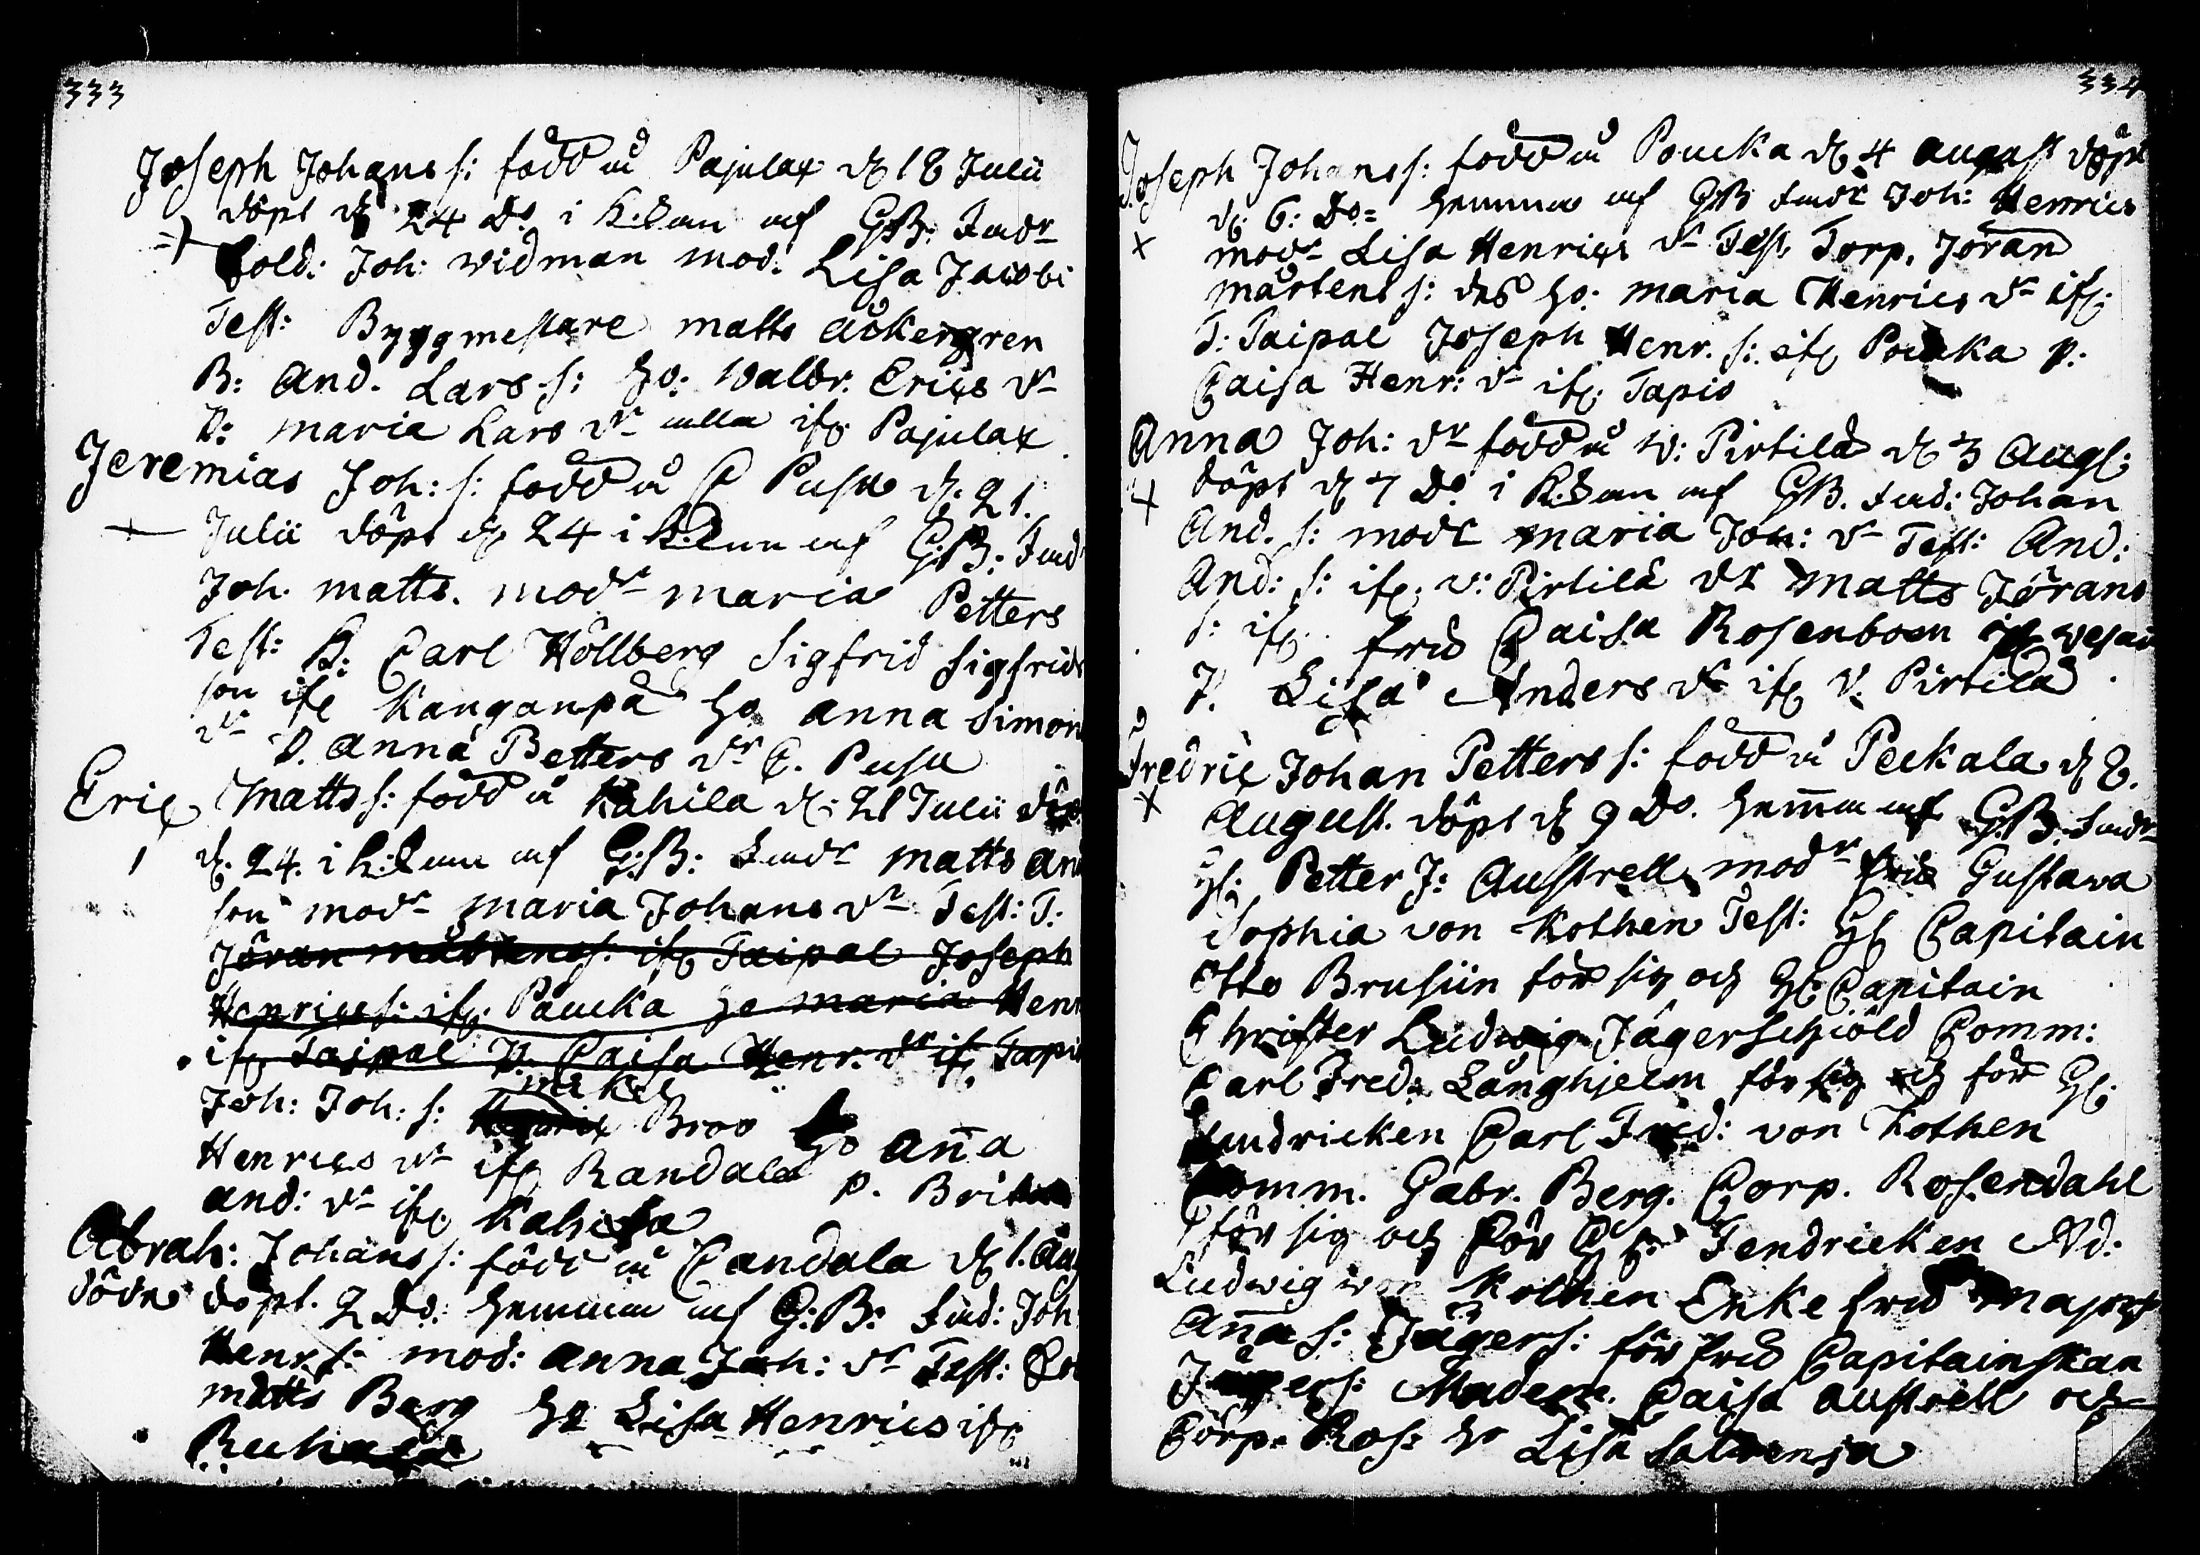 333
Joseph Johans s: född å Pajulax d. 18 Julii
döpt d. 24 Do i K: af GB: Fadr
Sold: Joh: Widman mod: Lisa Jacobs
Test: Byggmestare Matts Åckergren
B: And. Lars s: ho: Walbr. Erics dr
P: Maria Lars dr alla if. Pajulax
Jeremias Joh: s: född å C Pusu d. 21.
Julii döpt d. 24 i K: af G:B: Fad
Joh. Matts. modr Maria Petters
Test: B: Carl Hollberg Sigfrid Sigfrids
son if. Kanganpä ho Anna Simon
dr P. Anna Petters dr C. Pusu
Eric Matts s: född å Kahila d. 21 Julii
d. 24. i K: af G:B: Fadr Matts And
son modr Maria Johans dr Test: T:
Jöran Mårtens s. if. Taipal Joseph
Henrics s: if. Paucka ho Maria Hen
if. Taipal P. Caisa Henr. dr if. Tapi
Joh: Joh: s: Mikel Broo ho Aña
Henrics dr if. Randala P. Brita
And: dr if. Kahila
Abrah: Johans s: född å Candala d. 1. Aug
döde döpt. 2 Do: hemma af G:B: Fad: Joh
Henr s: mod: Anna Joh: dr Test:
Matts Berg ho Lisa Henrics if.
334
Joseph Johans s: född å Poucka d. 4 August döpt
d. 6: Do= hemma af GB Fadr Joh: Henrics
modr Lisa Henrics dr Test. Torp. Jöran
Mårtens s: des ho: Maria Henrics dr if.
T: Taipal Joseph Henr. s: if. Poucka P:
Caisa Henr: dr if. Tapio
Anna Joh: dr född å W: Pirtilä d. 3 Aug:
döpt d. 7 Do i K: af GB. Fad: Johan
And. s: modr Maria Joh: dr Test: And:
And: s: if. v: Pirtilä dr Matts Jörans
s: if. fru Caisa Rosenboom
P. Lisa Anders dr if. V. Pirtilä
Fredric Johan Petters s: född å Peckala d. 8.
August. döpt d. 9 Do. hem̄a af G:B. Fadr
H: Petter J: Austrell modr fru Gustava
Sophia von Kothen Test: H Capitain
Otto Brusiin för sig och H: Capitain
Christer Ludwig Jägerschiöld Comm:
Carl Fred: Långhjelm för sig och för H:
Fendricken Carl Fred: von Kothen
Comm. Gabr. Berg. Corp. Rosendahl
för sig och för Fendricken Ad:
Ludwig von Kothen Enke fru Major
Aña s: Jägers: för fru Capitainskan
Jägers: Madem. Caisa Austrell och
Corp. Ros: ho Lisa